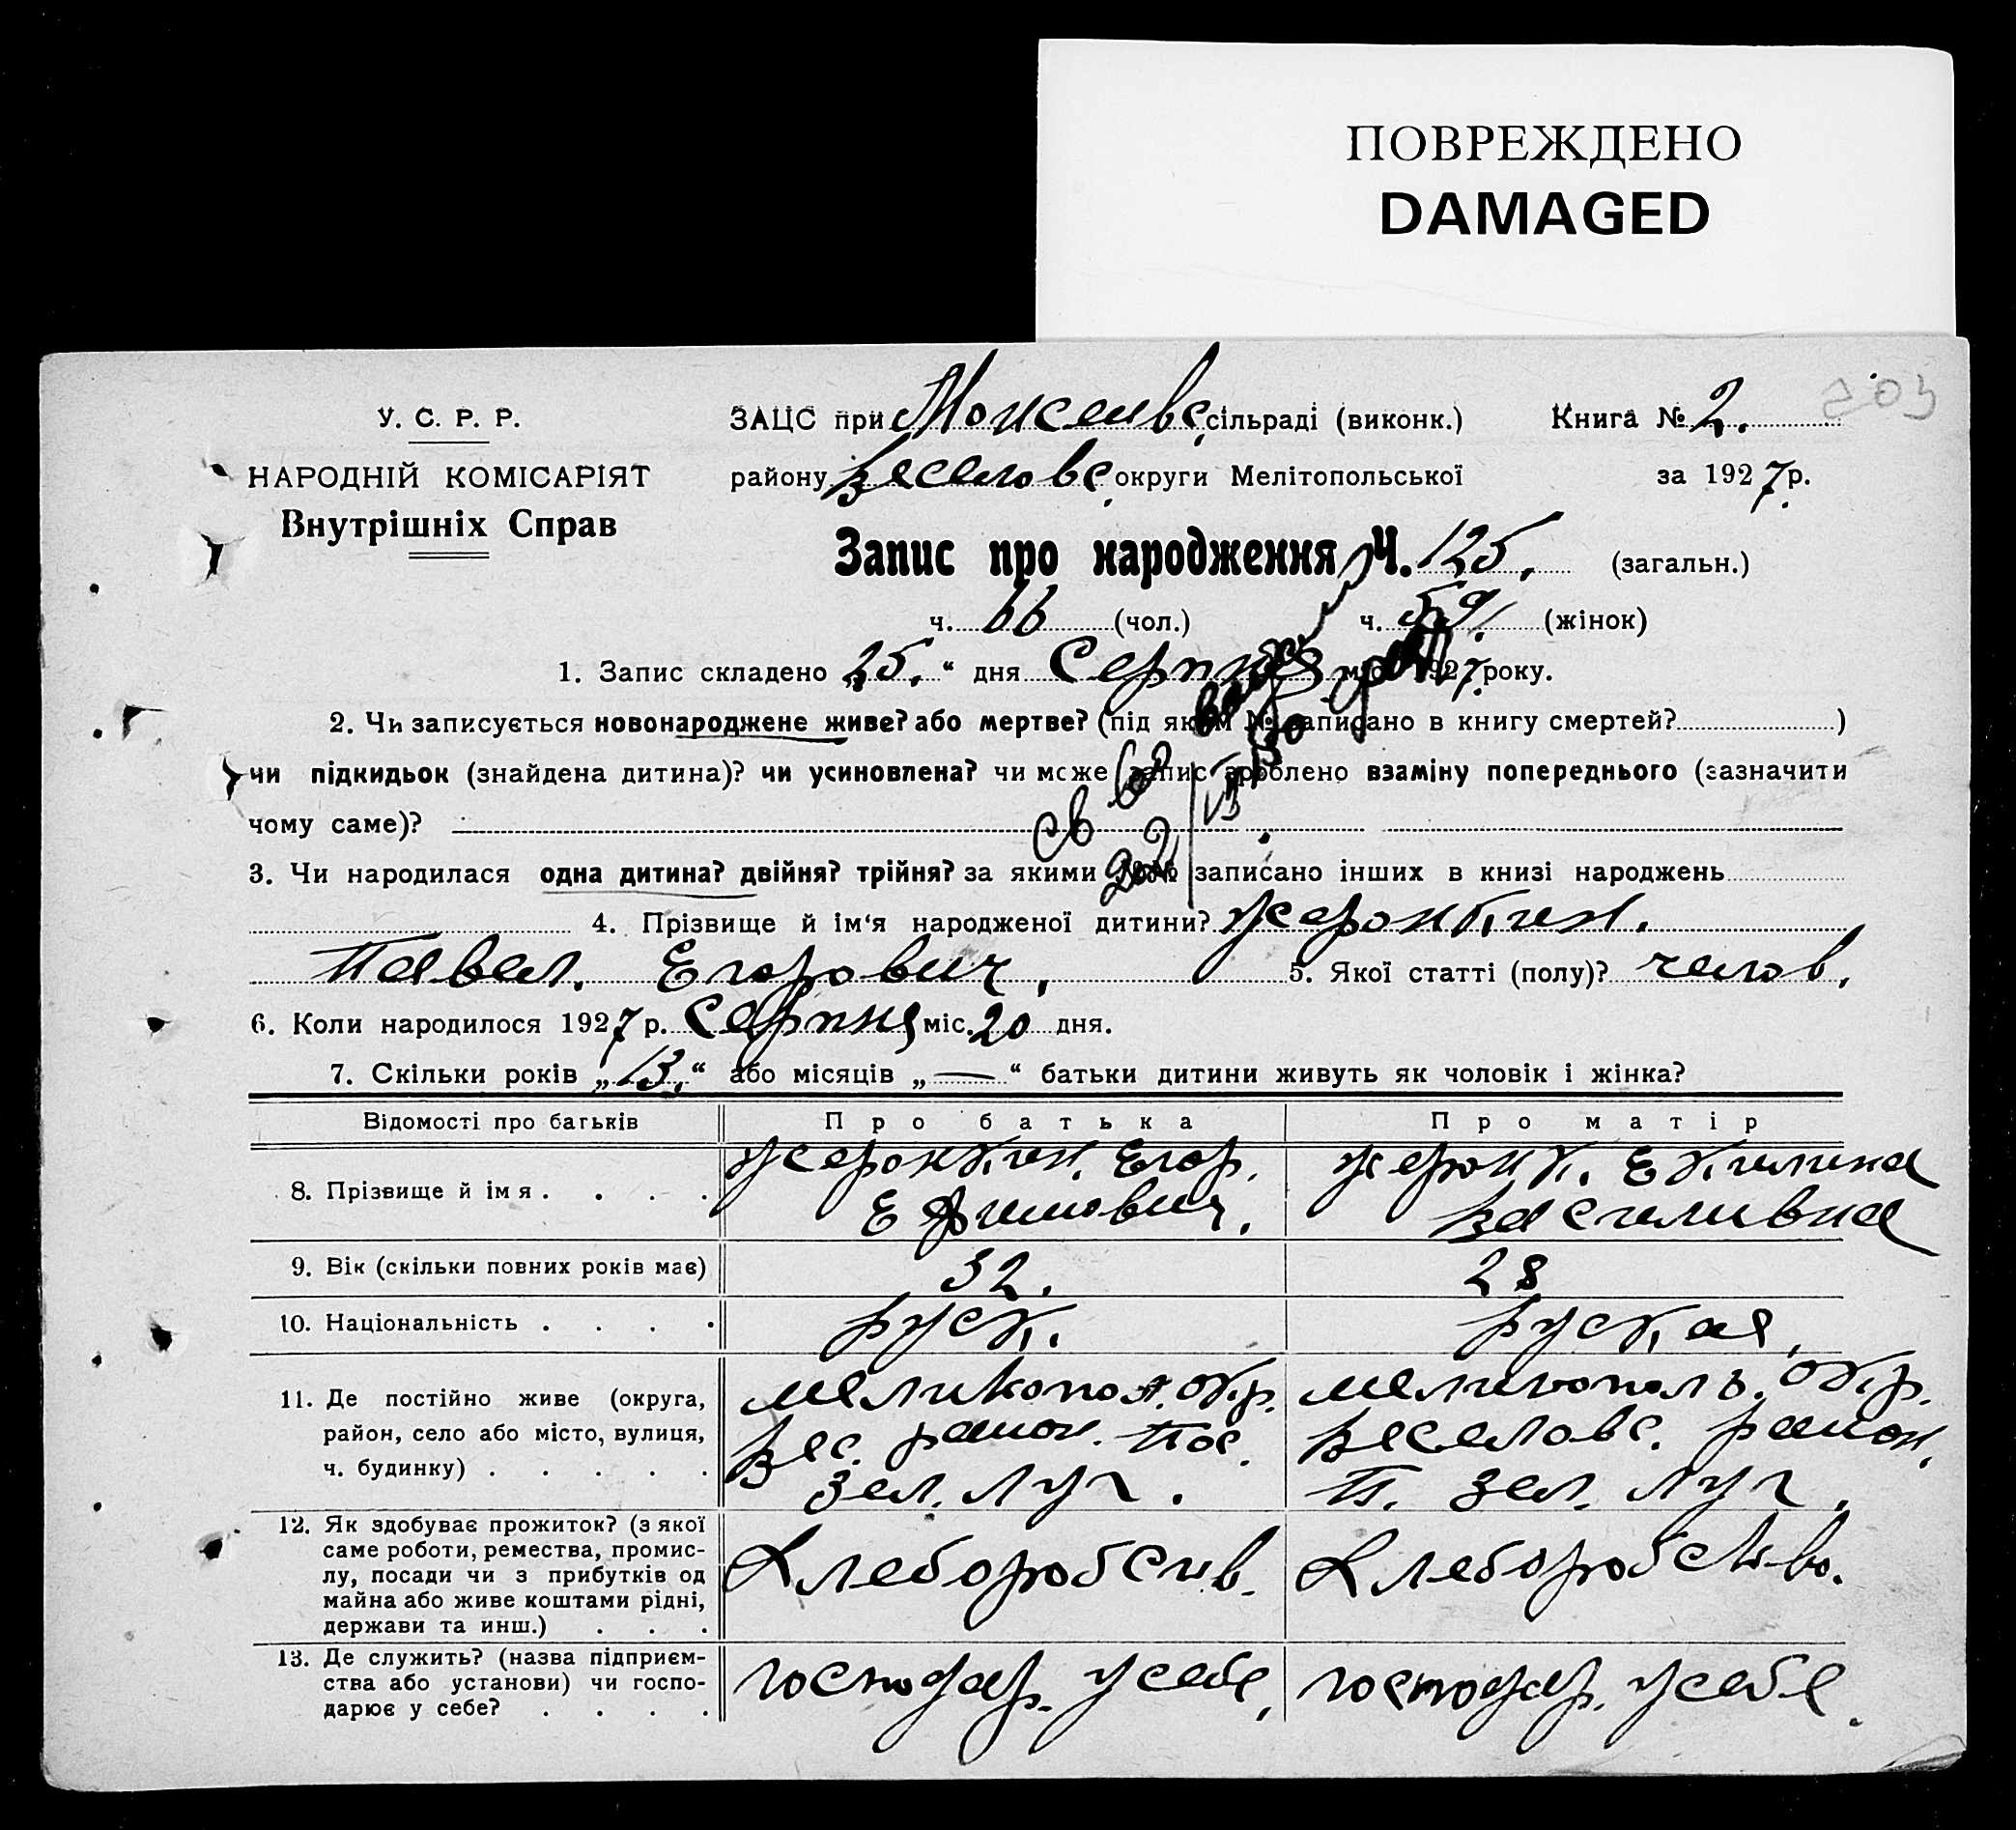 ПОВРЕЖДЕНО
DAMAGED
203
У. С. Р. Р.
НАРОДНІЙ КОМІСАРІЯТ
Внутрішніх Справ
ЗАЦС при сільраді (виконк.) Книга № 2.
району Веселовс. округи Мелітопольської за 1927 р.
Запис про народження Ч. 125. (загальн.)
ч. 66 (чол.) ч. 59. (жінок)
1. Запис складено „25.“ дня Серпня міс. 1927 року.
2. Чи записується новонароджене живе? або мертве? (під яким № записано в книгу смертей? )
чи підкидьок (знайдена дитина)? чи усиновлена? чи може запис зроблено взаміну попереднього (зазначити
чому саме)?
3. Чи народилася одна дитина? двійня? трійня? за якими №№ записано інших в книзі народжень
4. Прізвище й ім‘я народженої дитини?
Павел. Егорович. 5. Якої статті (полу)? челов.
6. Коли народилося 1927 р. Серпня міс. 20 дня.
7. Скільки років „13.“ або місяців „—“ батьки дитини живуть як чоловік і жінка?
Відомості про батьків Про батька Про матір
8. Прізвище й імя . . . . Егор. Ефимович.
Василивна
9. Вік (скільки повних років має) 32. 28
10. Національність . . . . руск. руская,
11. Де постійно живе (округа, район, село або місто, вулиця, ч. будинку) . . . . .
Мелитопол. окр. Вес. район. пос. Зел. Луч.
Мелитополь. окр. Веселовс. район. п. Зел. Луч.
12. Як здобуває прожиток? (з якої саме роботи, ремества, промислу, посади чи з прибутків од майна або живе коштами рідні, держави та инш.) . . .
Хлеборобств. Хлеборобство.
13. Де служить? (назва підприємства або установи) чи господарює у себе? . . . .
господар. у себе, господар. у себе.